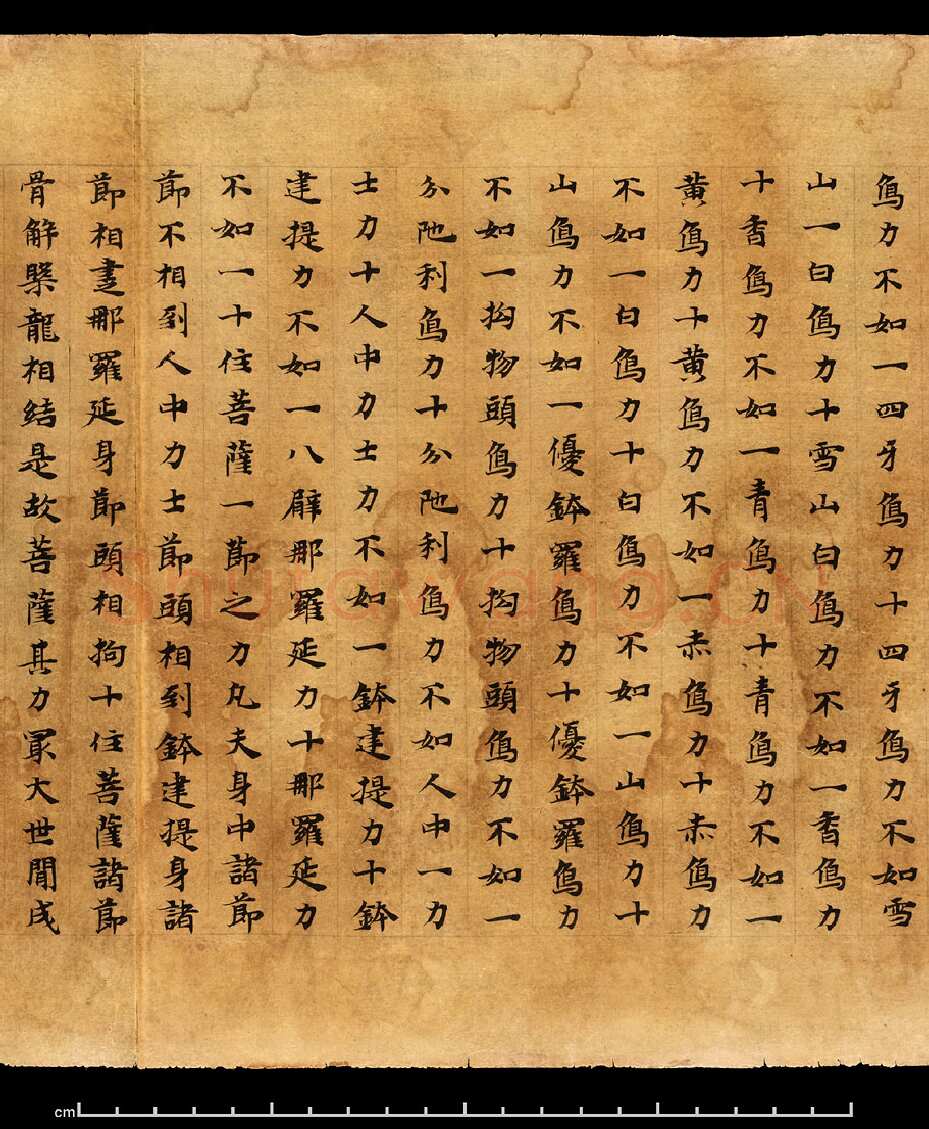 象力不如一四牙象力十四牙象力不如雪
山一白象力十雪山白象力不如一香象力
十香象力不如一青象力十青象力不如一
黄象力十黄象力不如一赤象力十赤象力
不如一白象力十白象力不如一山象力十
山象力不如一優鉢羅象力十優鉢羅象力
不如一拘物頭象力十拘物頭象力不如一
分陁利象力十分陁利象力不如人中一力
士力十人中力士力不如一鉢建提力十鉢
建提力不如一八辟那羅延力十那羅延力
不如一十住菩薩一節之力凡夫身中諸節
節不相到人中力士節頭相到鉢建提身諸
節相那羅延身節頭相拘十住菩薩諸節
骨解槃龍相結是故菩薩其力最大世間成
cm